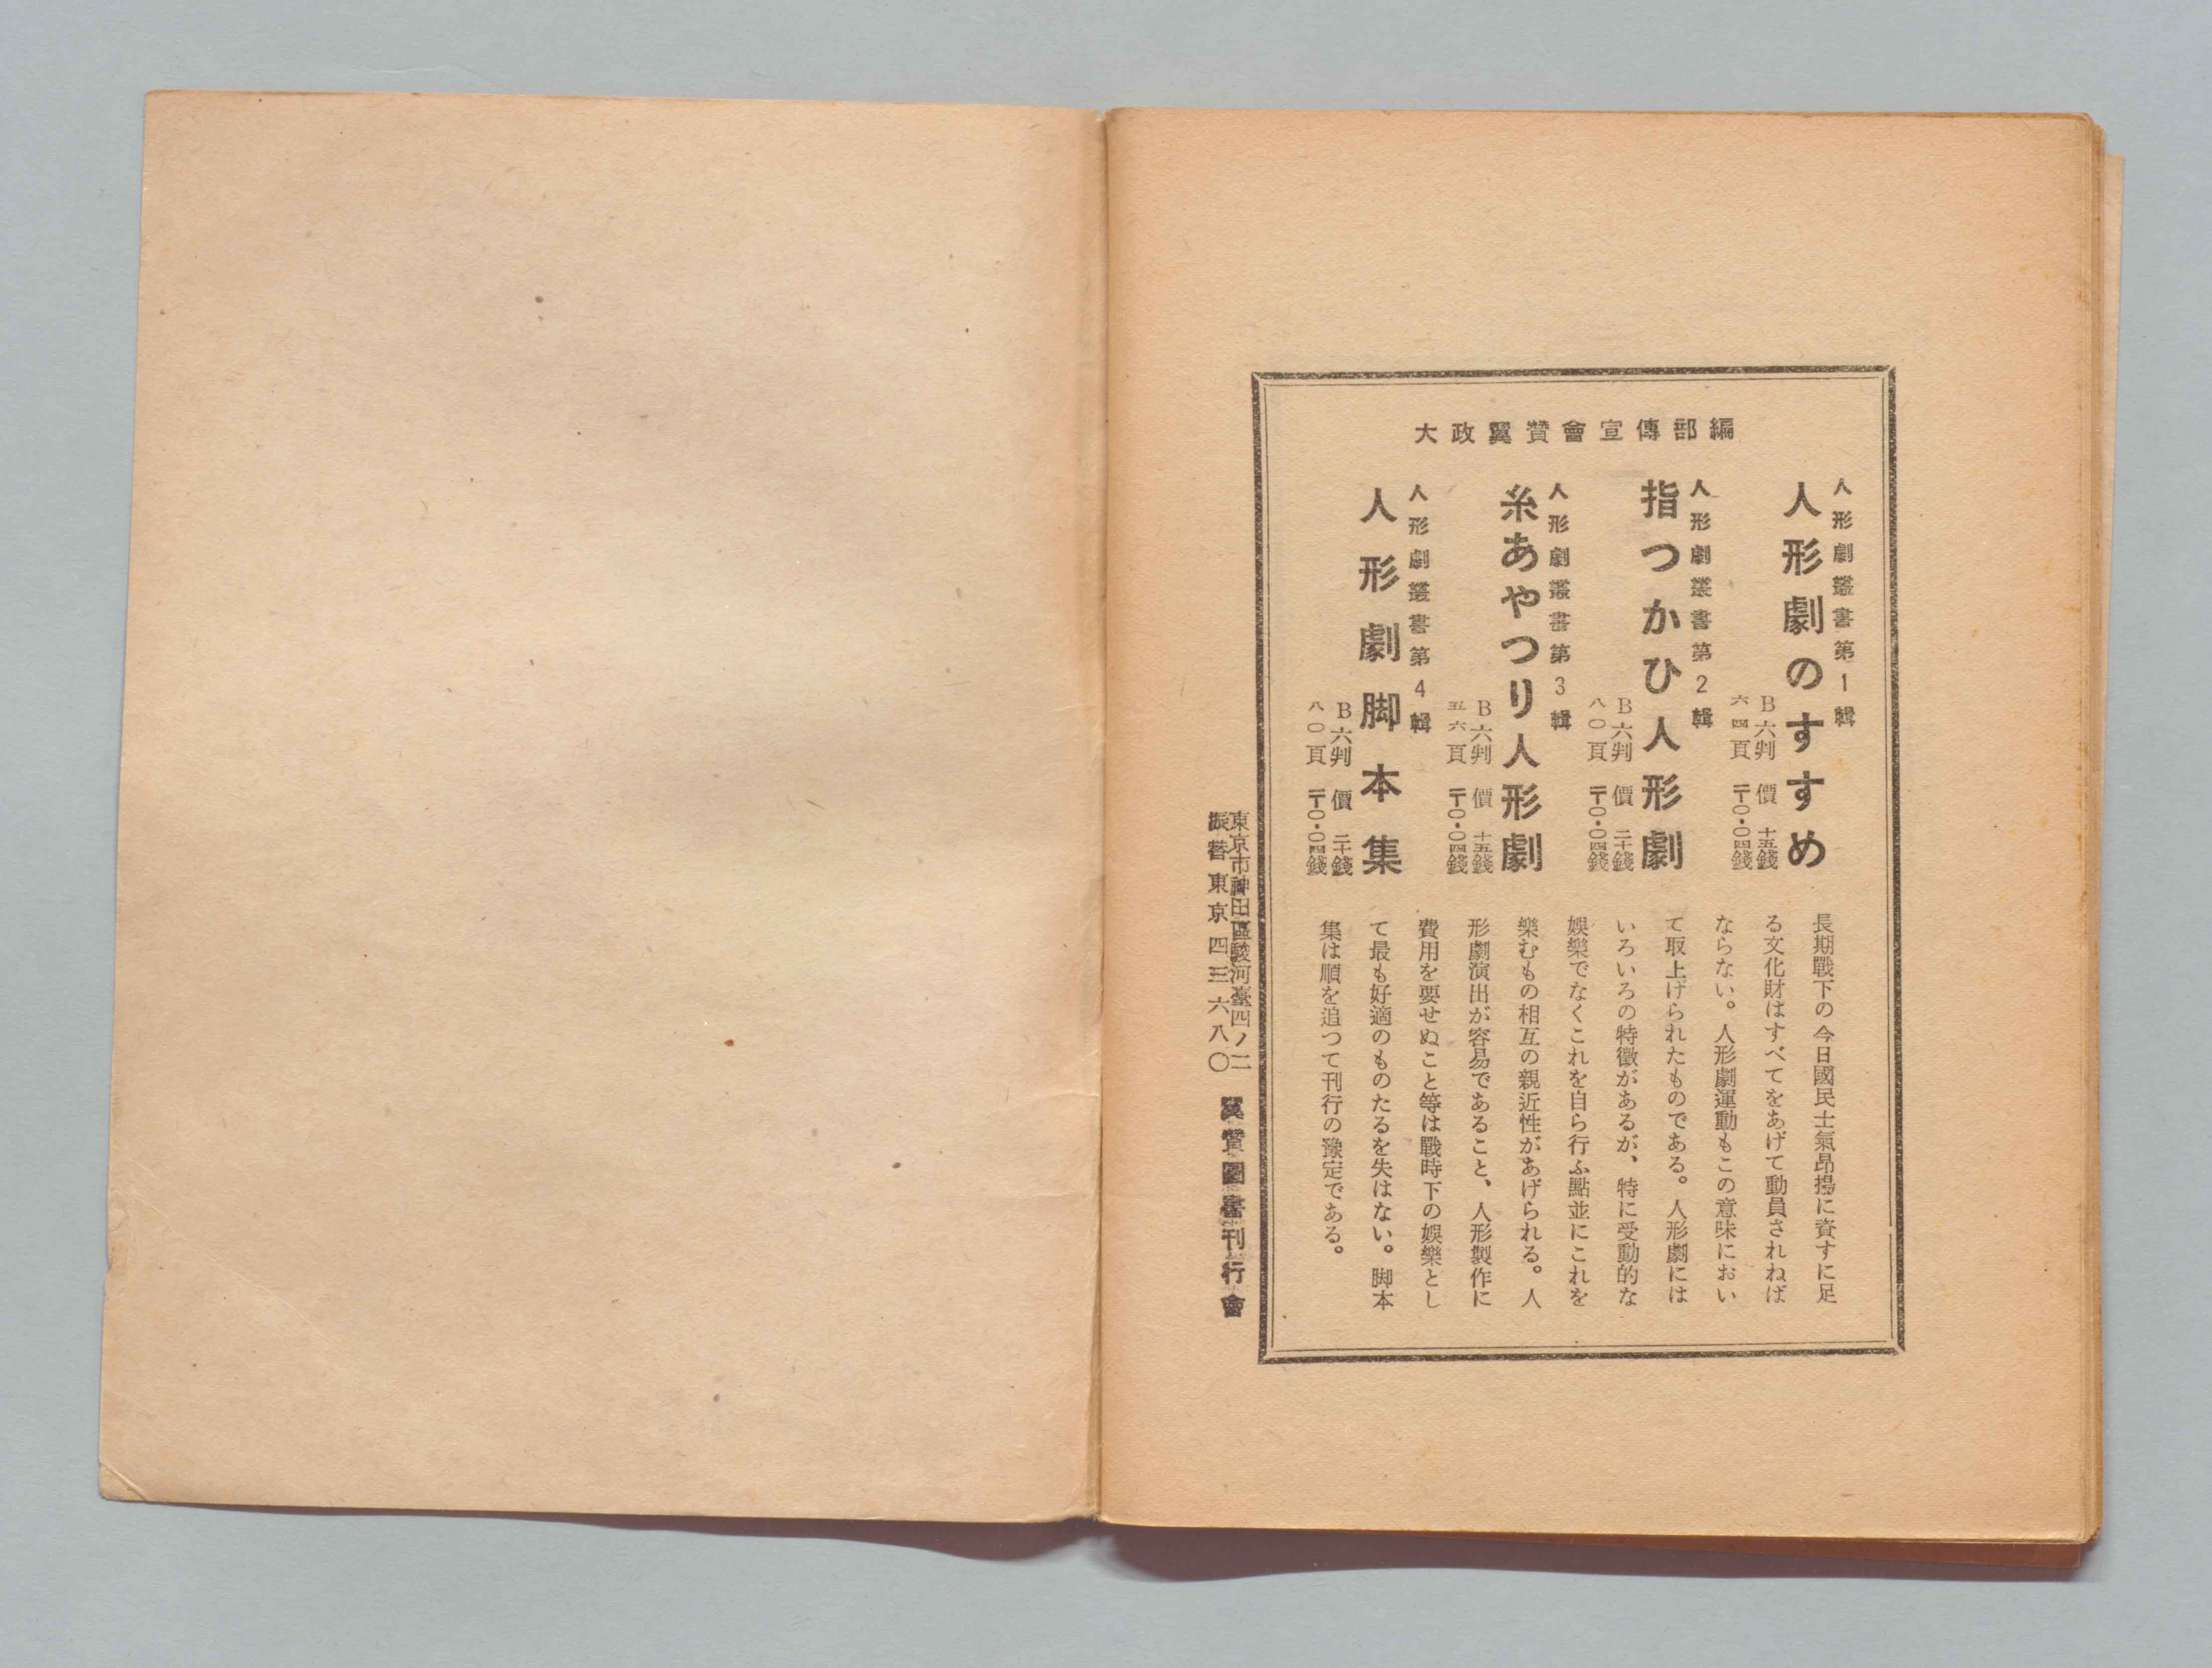 大政翼贊會宣傳部編
人形劇叢書第1輯
人形劇のすすめ
B六判 價 十五錢
六四頁 〒〇・〇四錢
人形劇叢書第2輯
指つかひ人形劇
B六判 價 二十錢
八〇頁 〒〇・〇四錢
人形劇叢書第3輯
糸あやつり人形劇
B六判 價 十五錢
五六頁 〒〇・〇四錢
人形劇叢書第4輯
人形劇脚本集
B六判 價 二十錢
八〇頁 〒〇・〇四錢
長期戰下の今日國民士氣昂揚に資すに足
る文化財はすべてをあげて動員されねば
ならない。人形劇運動もこの意味におい
て取上げられたものである。人形劇には
いろいろの特徵があるが、特に受動的な
娛樂でなくこれを自ら行ふ點並にこれを
樂むもの相互の親近性があげられる。人
形劇演出が容易であること、人形製作に
費用を要せぬこと等は戰時下の娛樂とし
て最も好適のものたるを失はない。脚本
集は順を追つて刊行の豫定である。
東京市神田區駿河臺四ノ二
振替東京四三六八〇
翼贊圖書刊行會